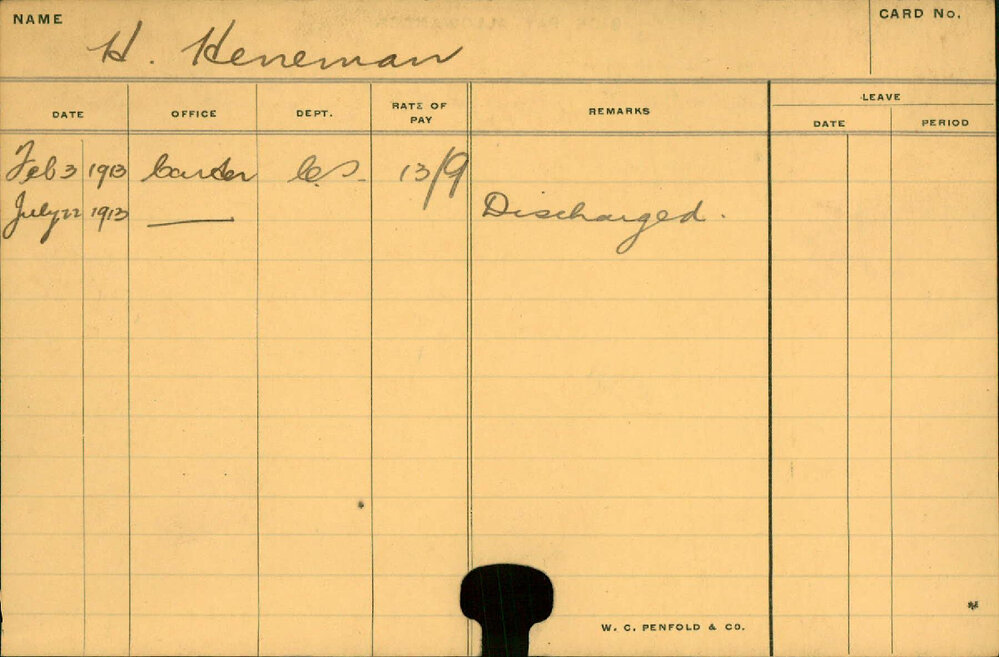 NAME H. Heneman CARD No.
DATE OFFICE DEPT. RATE OF PAY REMARKS LEAVE
DATE PERIOD
Feb 3 1913 Carter C.S. 13/9
July 22 1913 —— Discharged.
W. C. PENFOLD & CO.